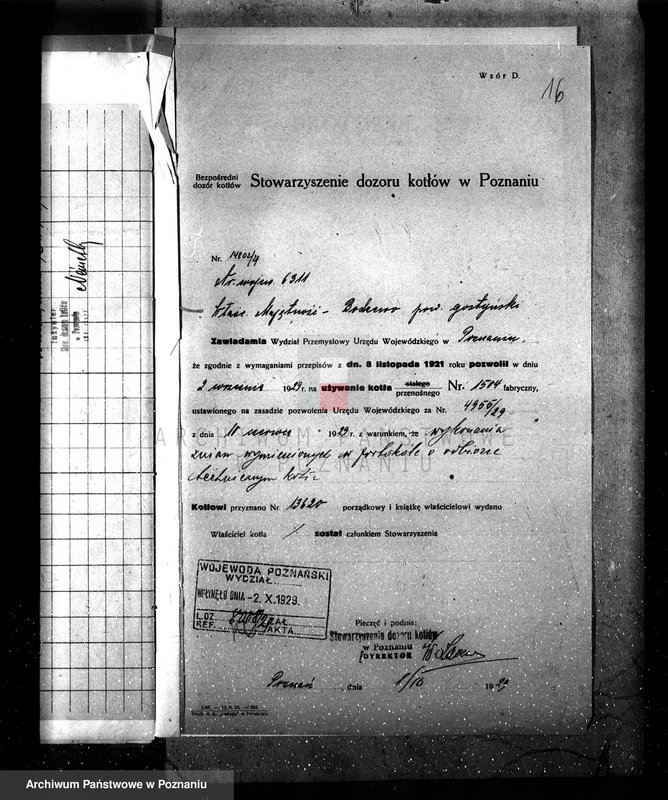 Wzór D.
16
Bezpośredni
dozór kotłów
Stowarzyszenie dozoru kotłów w Poznaniu
Nr. 14802/4
Nr. wojew. 6311
Właśc. Majętność - Bodzewo pow. gostyński
Zawiadamia Wydział Przemysłowy Urzędu Wojewódzkiego w Poznaniu,
że zgodnie z wymaganiami przepisów z dn. 8 listopada 1921 roku pozwolił w dniu
2 września 1929 r. na używanie kotła stałego przenośnego Nr. 1504 fabryczny,
ustawionego na zasadzie pozwolenia Urzędu Wojewódzkiego za Nr. 4955/29
z dnia 11 czerwca 1929 r. z warunkiem, że wykonania
zmian wymienionych w protokóle o odbiorze
technicznym kotła
Kotłowi przyznano Nr. 13620 porządkowy i książkę właścicielowi wydano
Właściciel kotła ./. został członkiem Stowarzyszenia
WOJEWODA POZNAŃSKI
WYDZIAŁ
WPŁYNĘŁO DNIA -2. X. 1929.
L. DZ.
REF.
AKTA
Pieczęć i podpis:
Stowarzyszenie dozoru kotłów
w Poznaniu
DYREKTOR
Poznań, dnia 1/10 1929
Inżynier
Stow. dozoru kotłów
w Poznaniu
ARCHIWUM PAŃSTWOWE
W POZNANIU
Archiwum Państwowe w Poznaniu